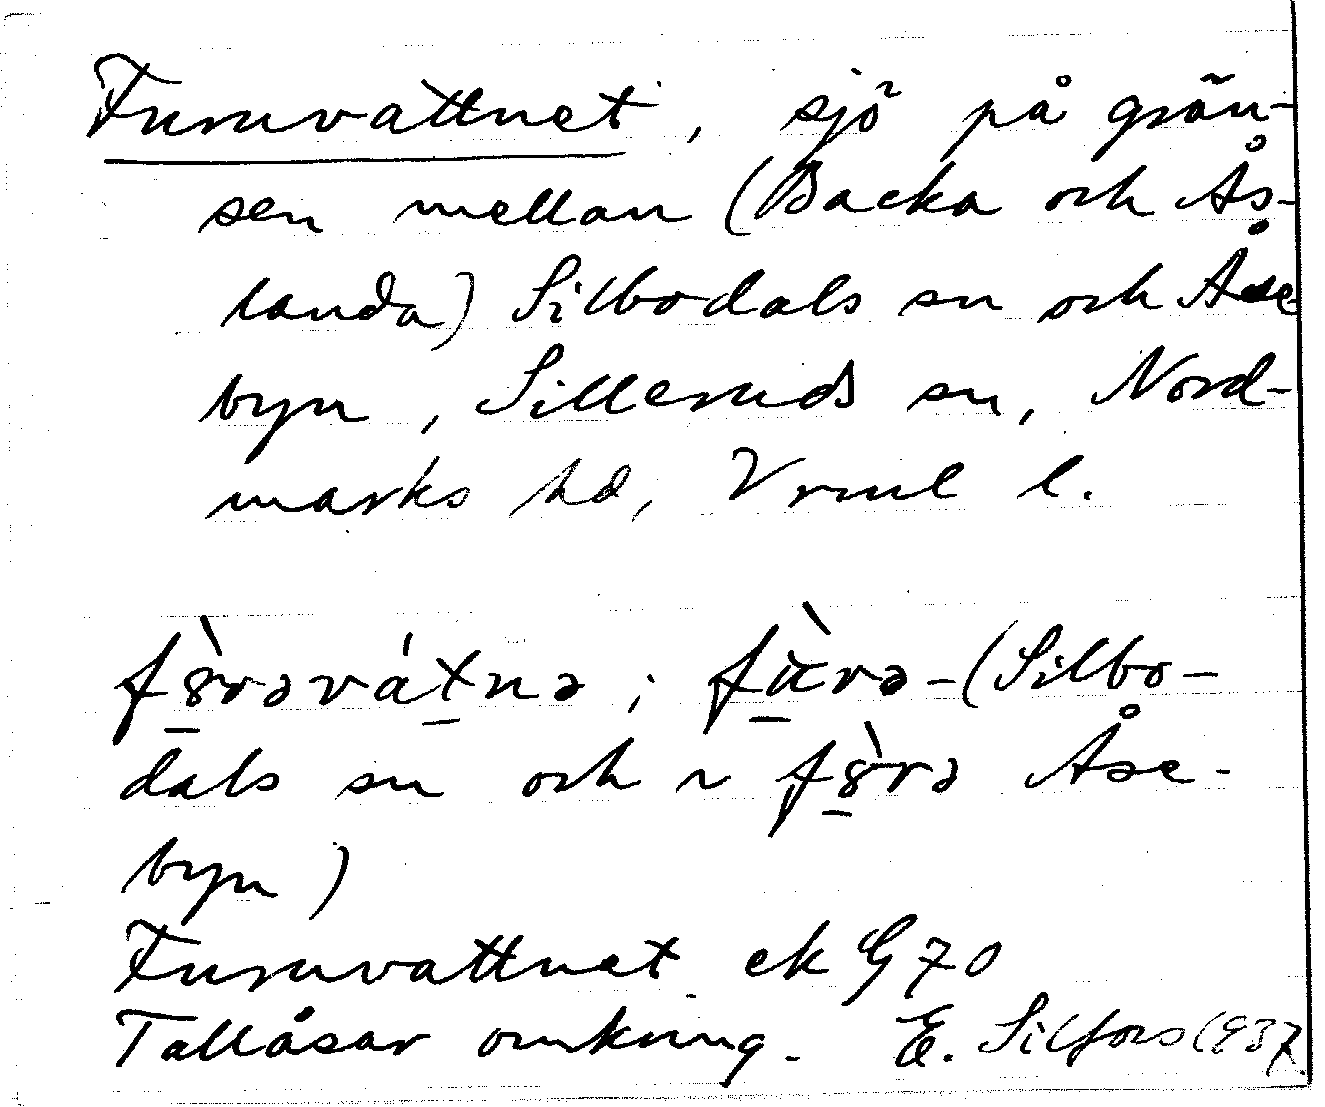 Furuvattnet, sjö på grän-
sen mellan (Backa och Ås-
landa) Silbodals sn och Åse
byn, Silleruds sn, Nord-
marks hd, Vrml l.
fȣ̀rəvátnə; fùrə-(Silbo-
dals sn och ~ fȣ̀rə Åse-
byn)
Furuvattnet ek G 70
Tallåsar omkring. E. Silfors 1937.